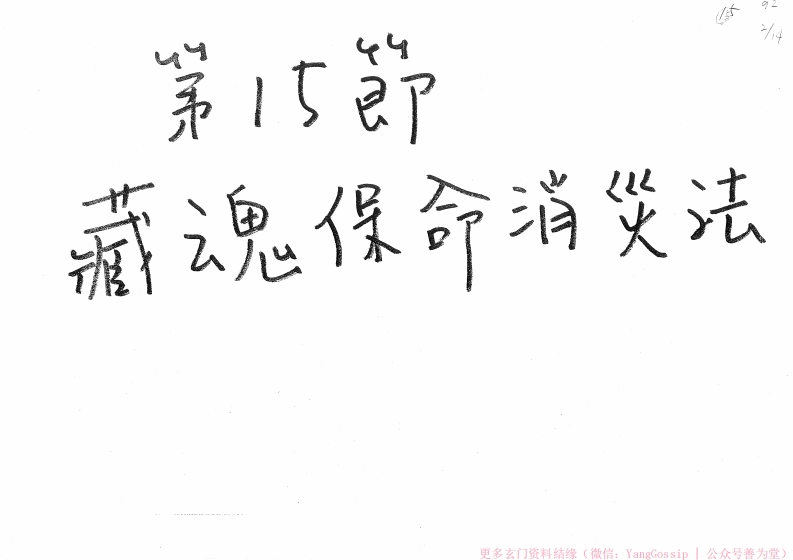 92
2/14
第15節
藏魂保命消災法
更多玄门资料结缘（微信：YangGossip | 公众号善为堂）